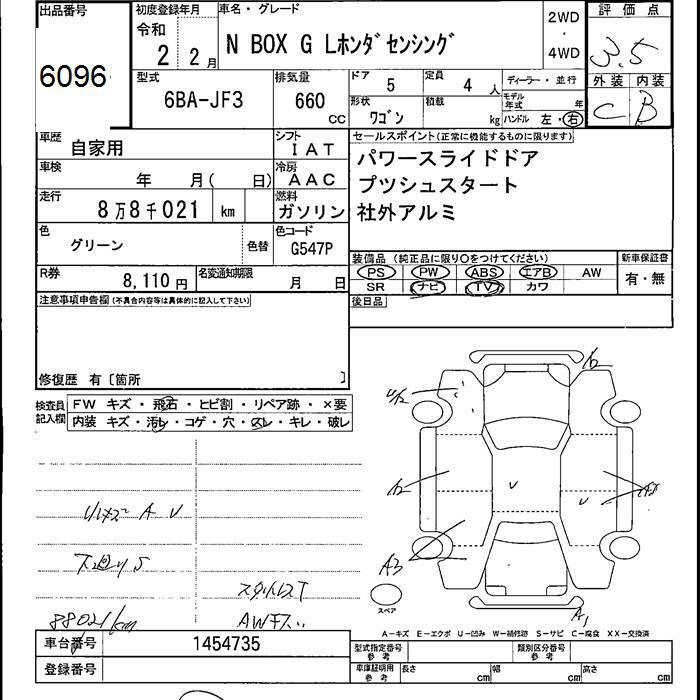 出品番号
6096
初度登録年月
令和
2 2月
車名・グレード
N BOX G Lホンダセンシング
2WD
・
4WD
評価点
3.5
外装 内装
C B
型式
6BA-JF3
排気量
660
CC
ドア 5
定員 4 人
ディーラー・並行
形状
ワゴン
積載
kg
モデル年式 年
ハンドル 左・右
車歴
自家用
シフト
IAT
車検
年 月( 日)
冷房
AAC
走行
8万8千021 km
燃料
ガソリン
色
グリーン
色替
色コード
G547P
R券
8,110円
名変通知期限
月 日
セールスポイント(正常に機能するものに限ります)
パワースライドドア
プツシュスタート
社外アルミ
装備品 (純正品に限り〇をつけてください)
PS PW ABS エアB AW
SR ナビ TV カワ
新車保証書
有・無
後日品
注意事項申告欄(不具合内容等は具体的に記入して下さい)
修復歴 有〔箇所 〕
検査員記入欄
FW キズ・飛石・ヒビ割・リペア跡・×要
内装 キズ・汚レ・コゲ・穴・スレ・キレ・破レ
A U
下廻りS
スタットレスT
88021km
U
U
A3
A1
スペア
A-キズ E-エクボ U-凹み W-補修跡 S-サビ C-腐食 XX-交換済
車台番号
1454735
登録番号
型式指定番号
参考
類別区分番号
参考
車庫証明用
参考
長さ cm
幅 cm
高さ cm